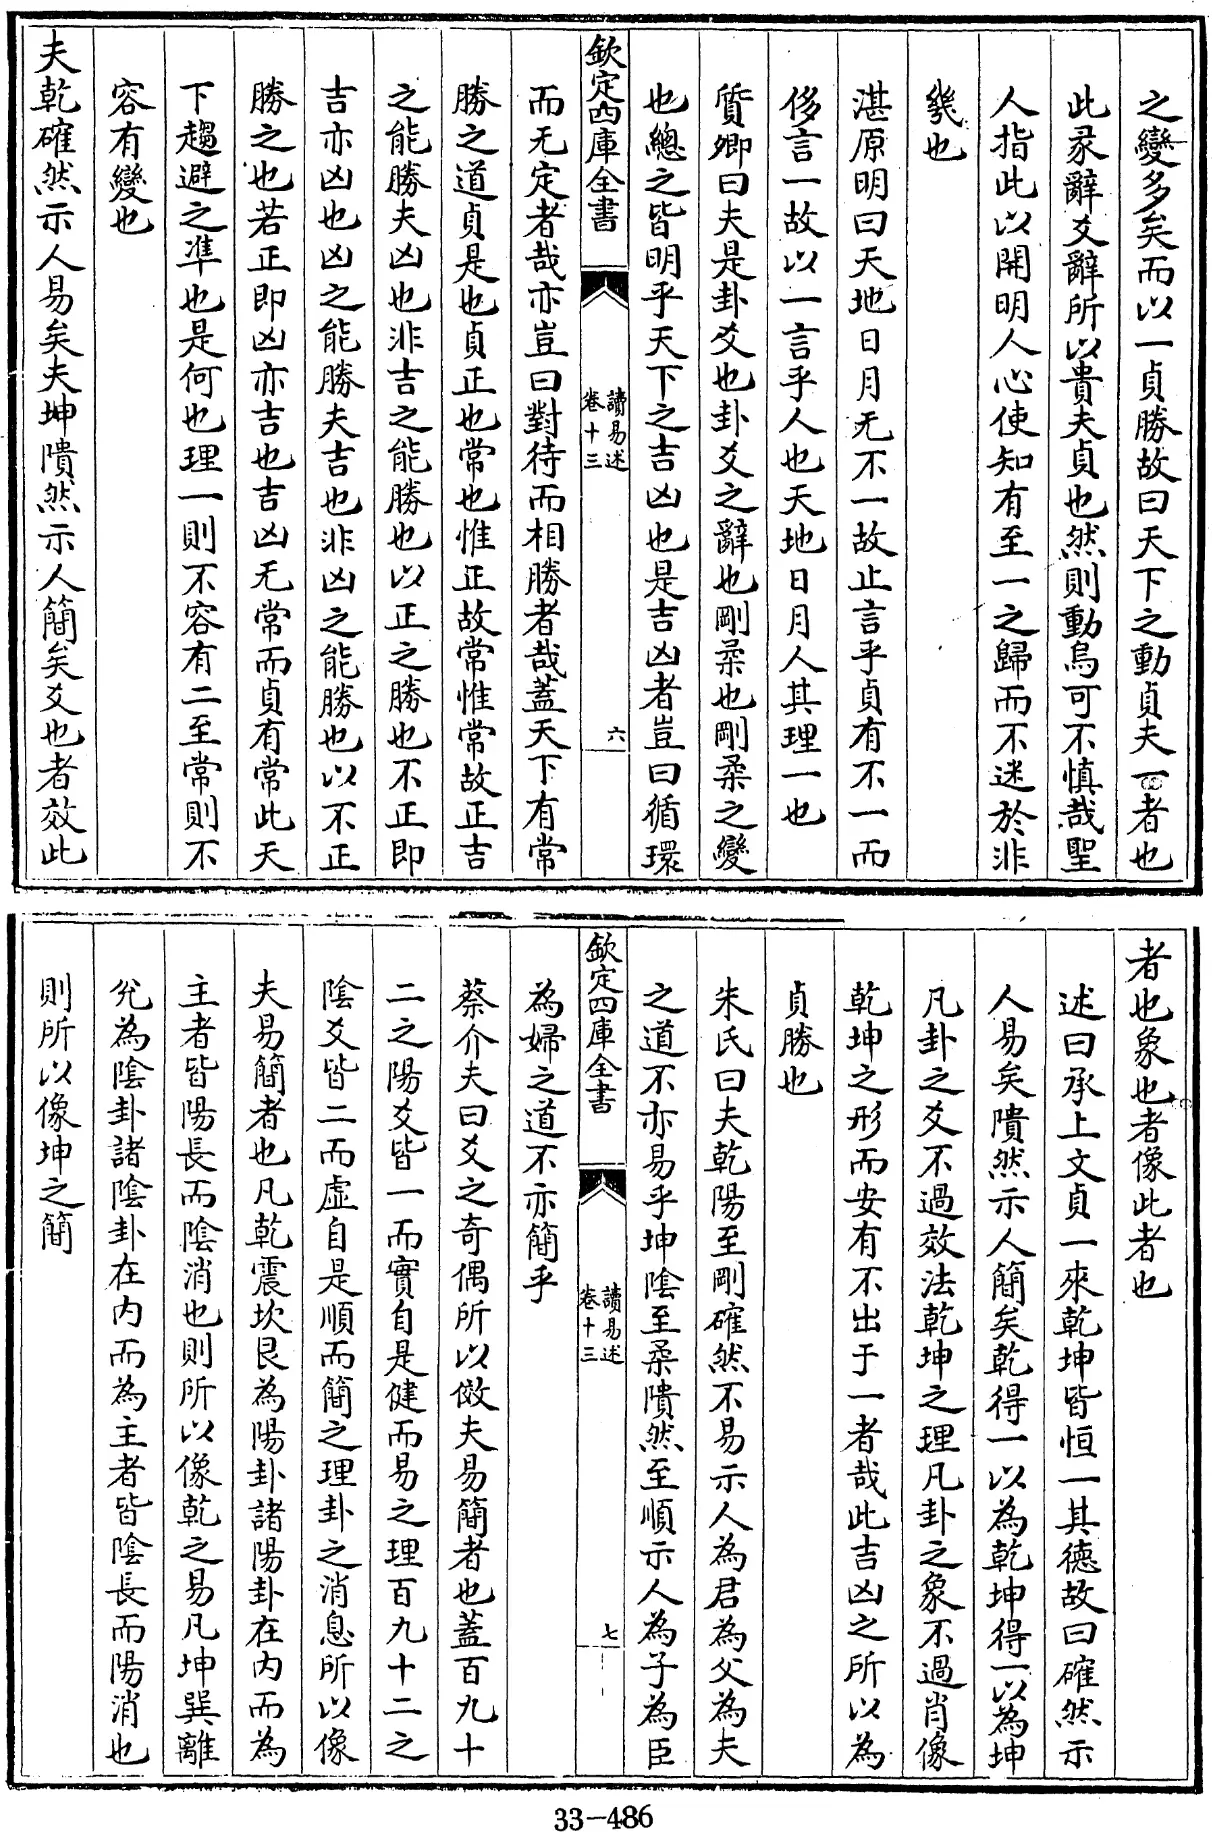 之變多矣而以一貞勝故曰天下之動貞夫一者也
此彖辭爻辭所以貴夫貞也然則動烏可不慎哉聖
人指此以開明人心使知有至一之歸而不迷於非
幾也
湛原明曰天地日月无不一故止言乎貞有不一而
侈言一故以一言乎人也天地日月人其理一也
質卿曰夫是卦爻也卦爻之辭也剛柔也剛柔之變
也總之皆明乎天下之吉凶也是吉凶者豈曰循環
欽定四庫全書
讀易述
卷十三
六
而无定者哉亦豈曰對待而相勝者哉蓋天下有常
勝之道貞是也貞正也常也惟正故常惟常故正吉
之能勝夫凶也非吉之能勝也以正之勝也不正即
吉亦凶也凶之能勝夫吉也非凶之能勝也以不正
勝之也若正即凶亦吉也吉凶无常而貞有常此天
下趨避之準也是何也理一則不容有二至常則不
容有變也
夫乾確然示人易矣夫坤隤然示人簡矣爻也者效此
者也象也者像此者也
述曰承上文貞一來乾坤皆恒一其德故曰確然示
人易矣隤然示人簡矣乾得一以為乾坤得一以為坤
凡卦之爻不過效法乾坤之理凡卦之象不過肖像
乾坤之形而安有不出于一者哉此吉凶之所以為
貞勝也
朱氏曰夫乾陽至剛確然不易示人為君為父為夫
之道不亦易乎坤陰至柔隤然至順示人為子為臣
欽定四庫全書
讀易述
卷十三
七
為婦之道不亦簡乎
蔡介夫曰爻之奇偶所以倣夫易簡者也蓋百九十
二之陽爻皆一而實自是健而易之理百九十二之
陰爻皆二而虛自是順而簡之理卦之消息所以像
夫易簡者也凡乾震坎艮為陽卦諸陽卦在內而為
主者皆陽長而陰消也則所以像乾之易凡坤巽離
兌為陰卦諸陰卦在內而為主者皆陰長而陽消也
則所以像坤之簡
33-486